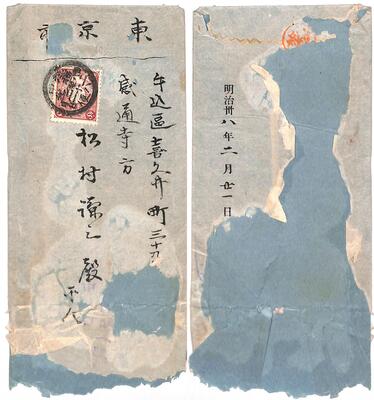 東京市
牛込區喜久井町三十九
感通寺方
松村謙三殿
平人
明治卅八年二月廿一日